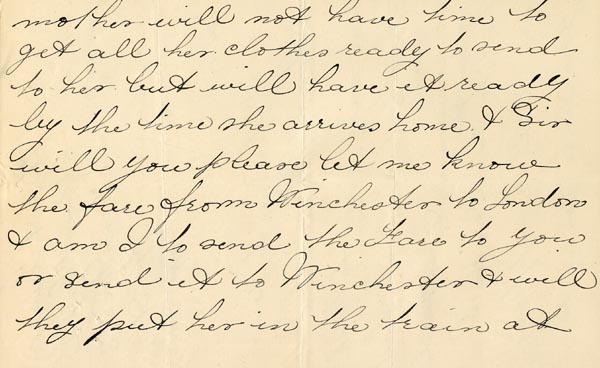 mother will not have time to
get all her clothes ready to send
to her but will have it ready
by the time she arrives home & Sir
will you please let me know
the fare from Winchester to London
& am I to send the Fare to you
or send it to Winchester & will
they put her in the train at